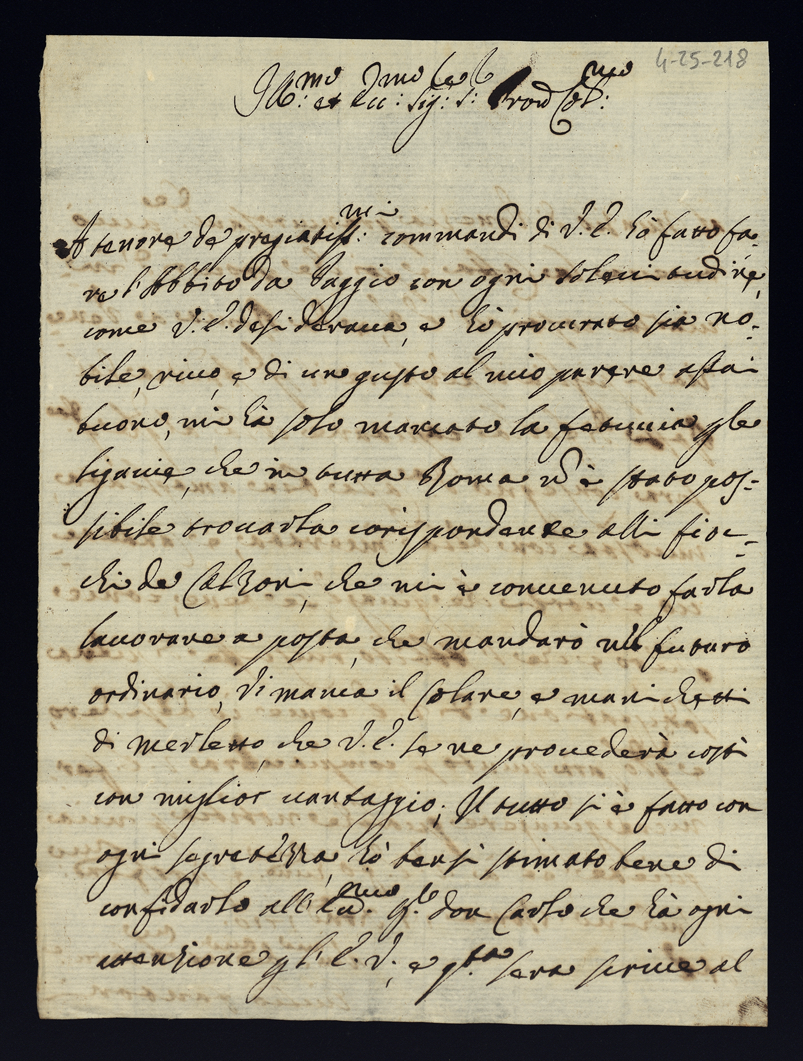 4-25-218
Ill:mo et Ecc:mo Sig: S: Pron Col:mo
A tenore de pregiatiss:mi commandi di V.E. hò fatto fa-
re l'Abbito da Paggio con ogni solecitudine,
come V.E. desideraua, e hò procurato sia no-
bile, rico, e di un gusto al mio parere assai
buono, mi hà solo mancato la fetuccia p le
ligacie, che in tutta Roma nō è stato pos-
sibile trouarla corispondente alli fioc-
chi de Calzoni, che mi è conuenuto farla
lauorare a posta, che mandarò nel futuro
ordinario, Vi manca il Colare, e manichetti
di merletto, che V.E. se ne prouederà costì
con miglior uantaggio; Il tutto si è fatto con
ogni segretezza, hò bensì stimato bene di
confidarlo all' Ecc:mo Sig:re don Carlo che hà ogni
attenzione p l'E.V., e q:ta sera scriue al